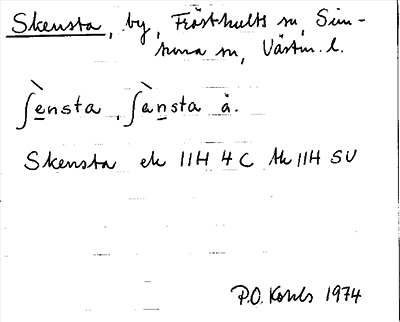 Skensta, by, Frösthults sn, Sim-
tuna sn, Västm. l.
ʃènsta, ʃànsta å.
Skensta ek 11H 4C tk 11H SV
P.O. Kohls 1974